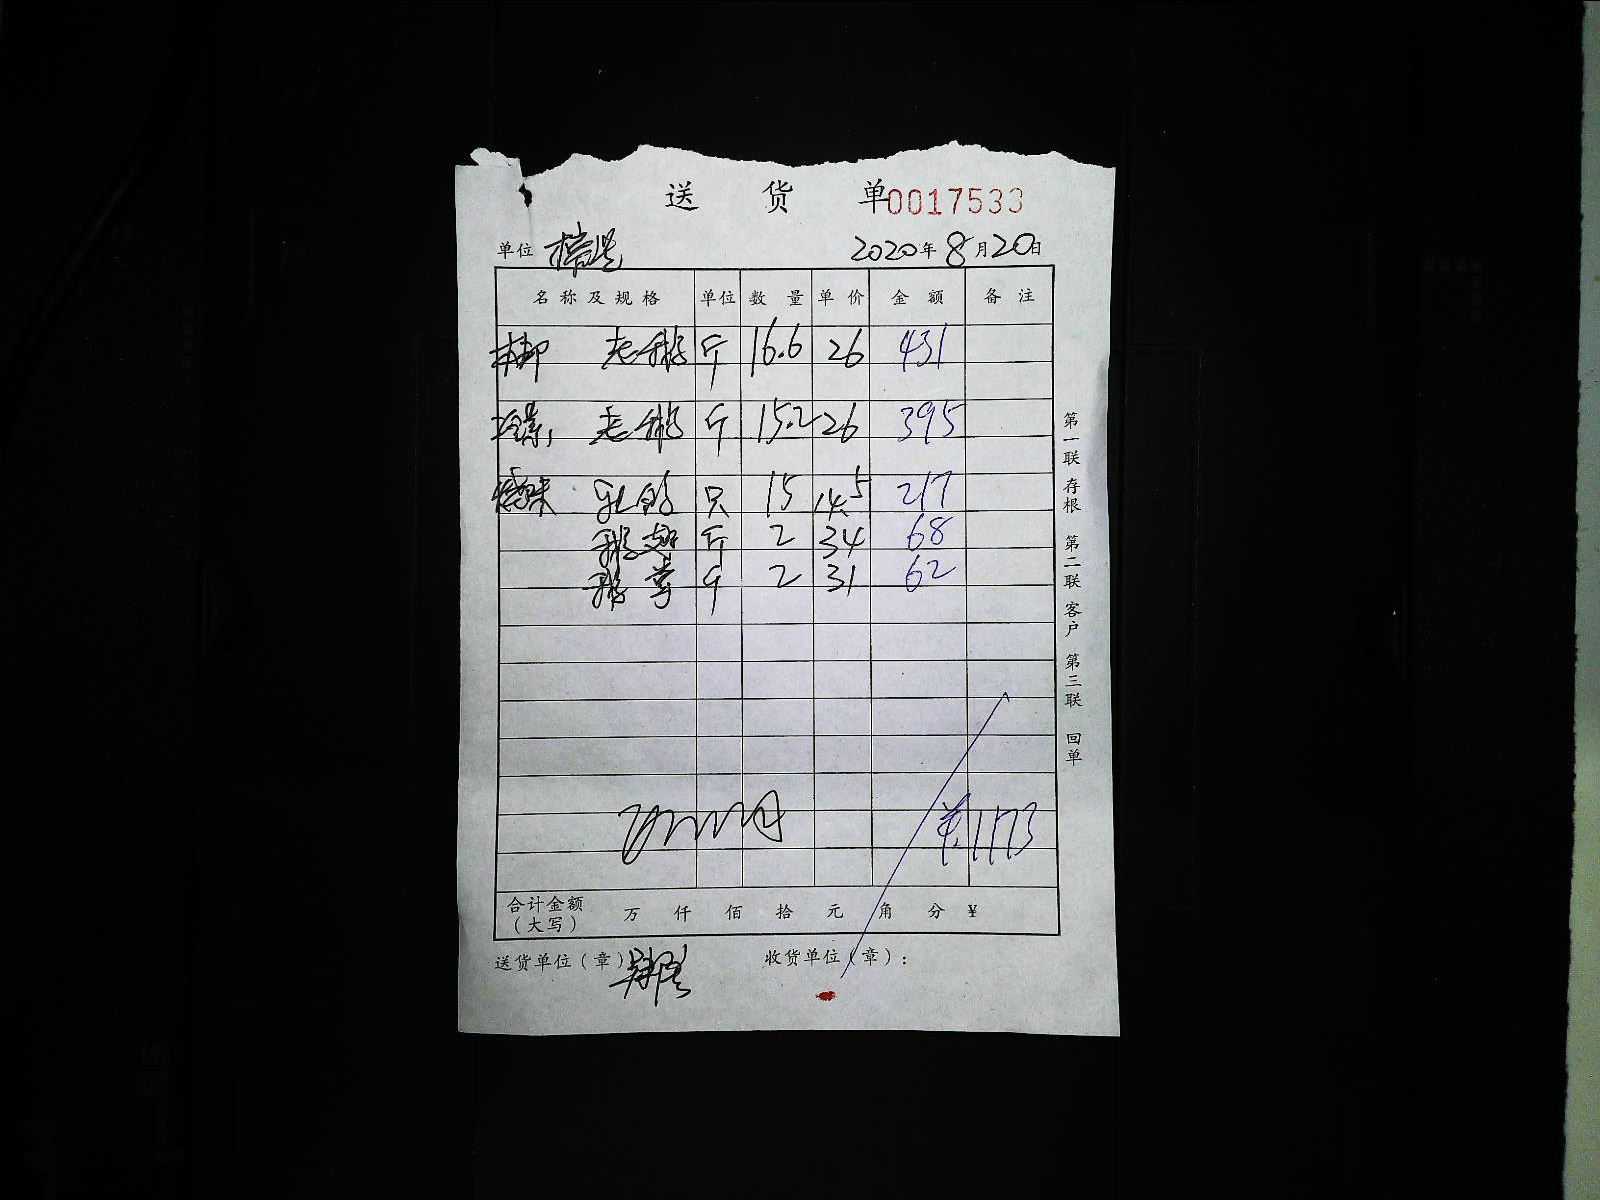 送货单0017533
单位 2020年8月20日
名称及规格 单位 数量 单价 金额 备注
老鹅 斤 16.6 26 431
老鹅 斤 15.2 26 395
烧味 乳鸽 只 15 14.5 217
鹅翅 斤 2 34 68
鹅掌 斤 2 31 62
1173
合计金额（大写） 万 仟 佰 拾 元 角 分 ¥
送货单位（章） 收货单位（章）：
第一联 存根 第二联 客户 第三联 回单